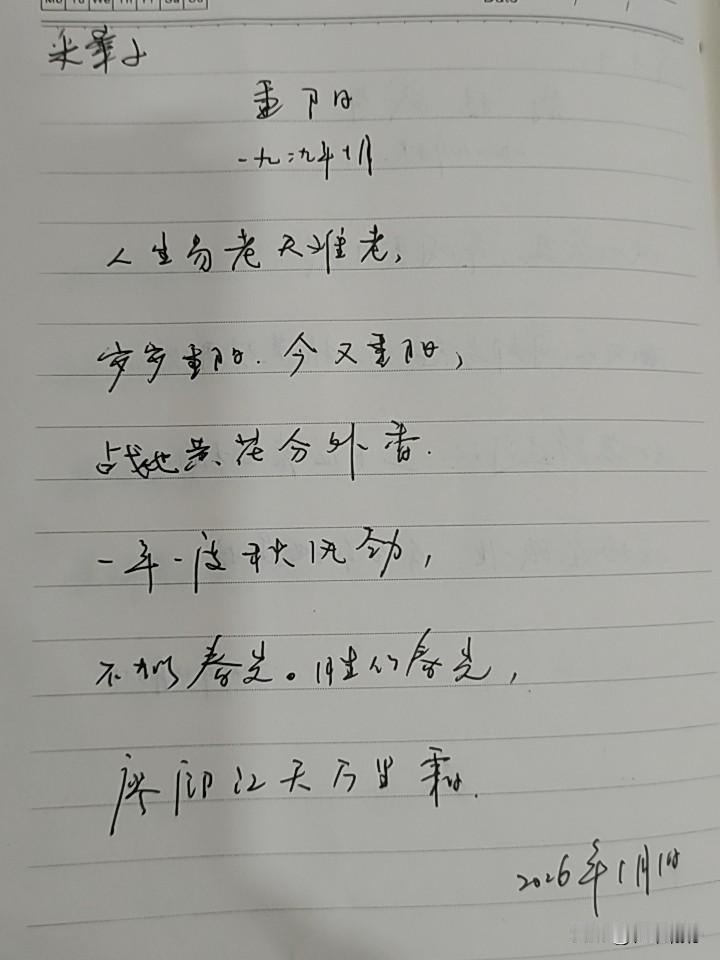 Mo Tu We Th Fr Sa Su
Date / /
采桑子
重阳
一九二九年十月
人生易老天难老,
岁岁重阳.今又重阳,
战地黄花分外香.
一年一度秋风劲,
不似春光。胜似春光,
廖廓江天万里霜.
2026年1月1日